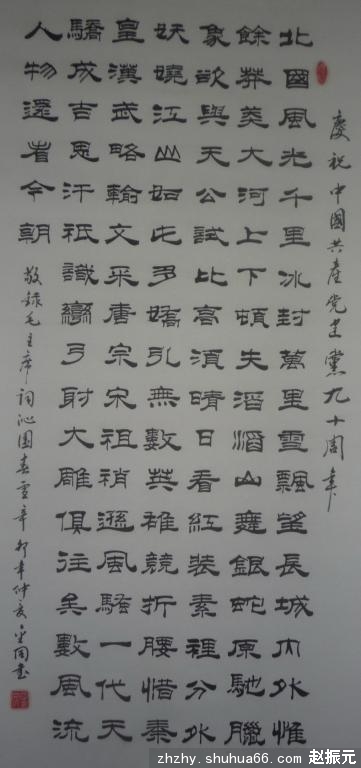 慶祝中國共產党建黨九十周年
北國風光千里冰封萬里雪飄望長城內外惟
餘莽莽大河上下頓失滔滔山舞銀蛇原馳臘
象欲與天公試比高須晴日看紅裝素裡分外
妖嬈江山如此多嬌引無數英雄競折腰惜秦
皇漢武略輸文采唐宗宋祖稍遜風騷一代天
驕成吉思汗祇識彎弓射大雕俱往矣數風流
人物還看今朝
敬錄毛主席詞沁園春雪辛卯年仲夏書
zhzhy.shuhua66.com 赵振元